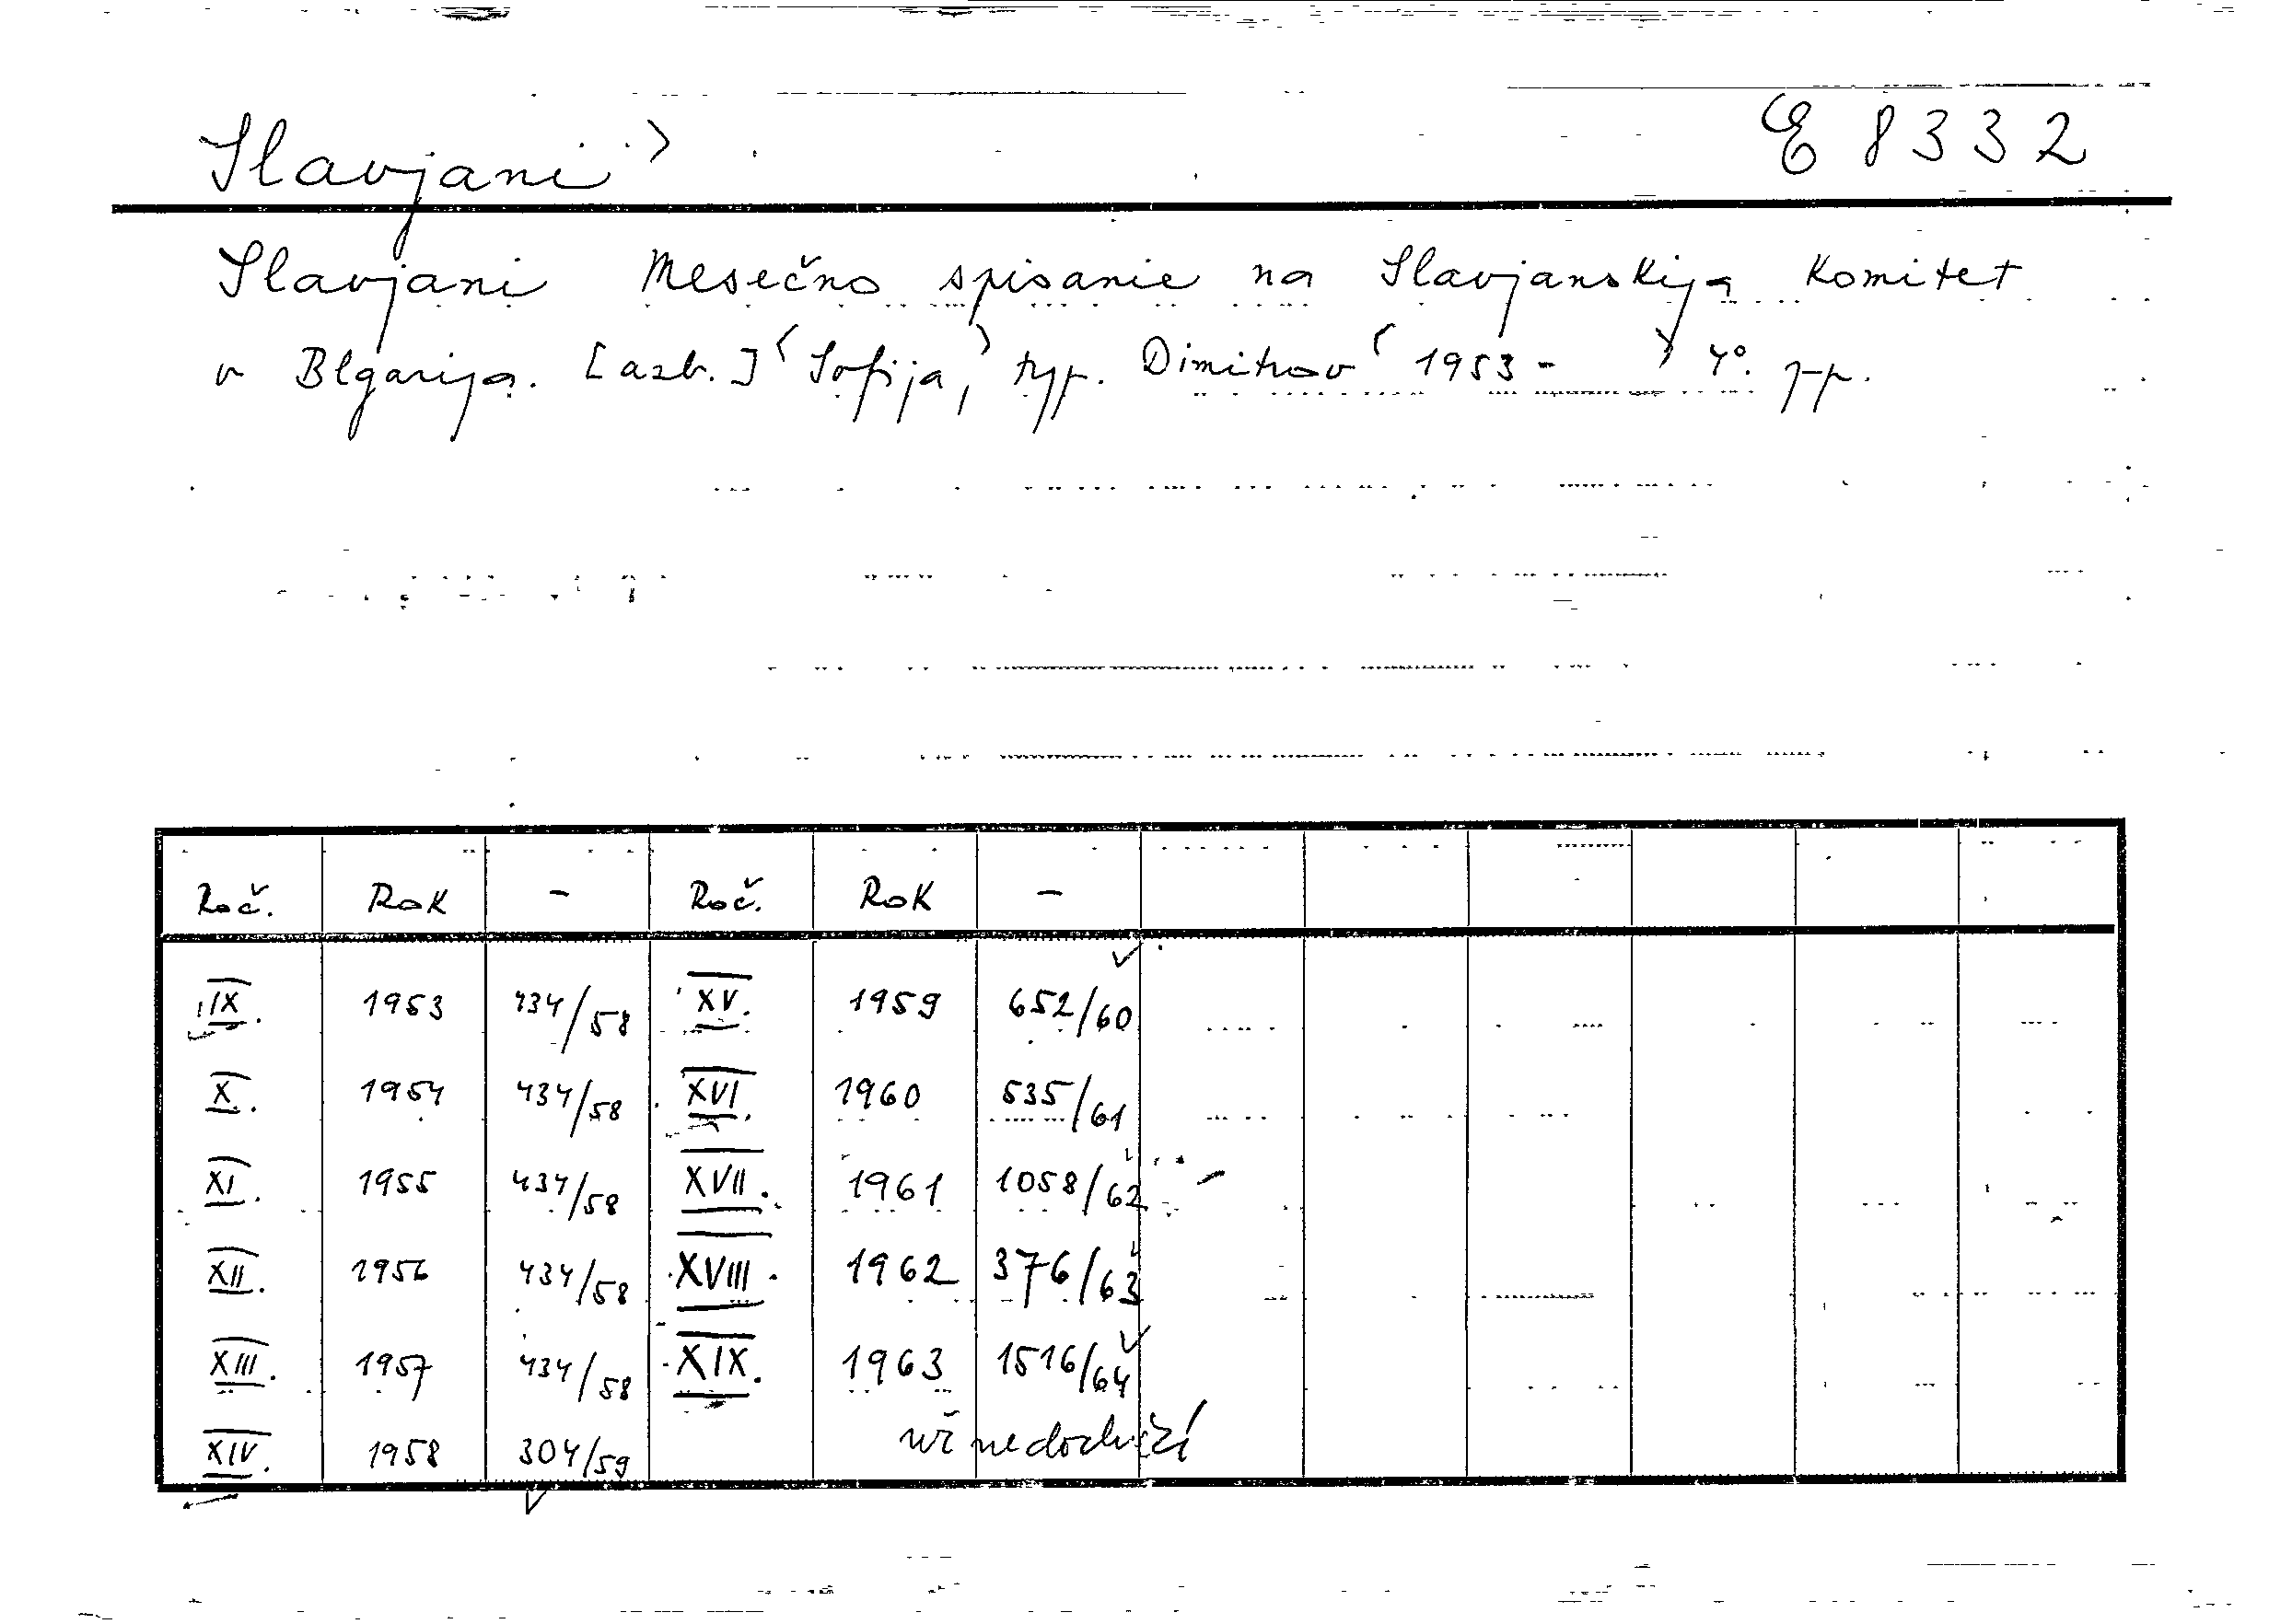 Slavjani
E 8332
Slavjani Mesečno spisanie na Slavjanskija Komitet
v Blgarija. [azb.] (Sofija,) typ. Dimitrov (1953 - ) 4°. p-p.
Roč. Rok - Roč. Rok -
IX. 1953 434/58 XV. 1959 652/60
X. 1954 434/58 XVI. 1960 535/61
XI. 1955 434/58 XVII. 1961 1058/62
XII. 1956 434/58 XVIII. 1962 376/63
XIII. 1957 434/58 XIX. 1963 1516/64
XIV. 1958 304/59 již nedochází